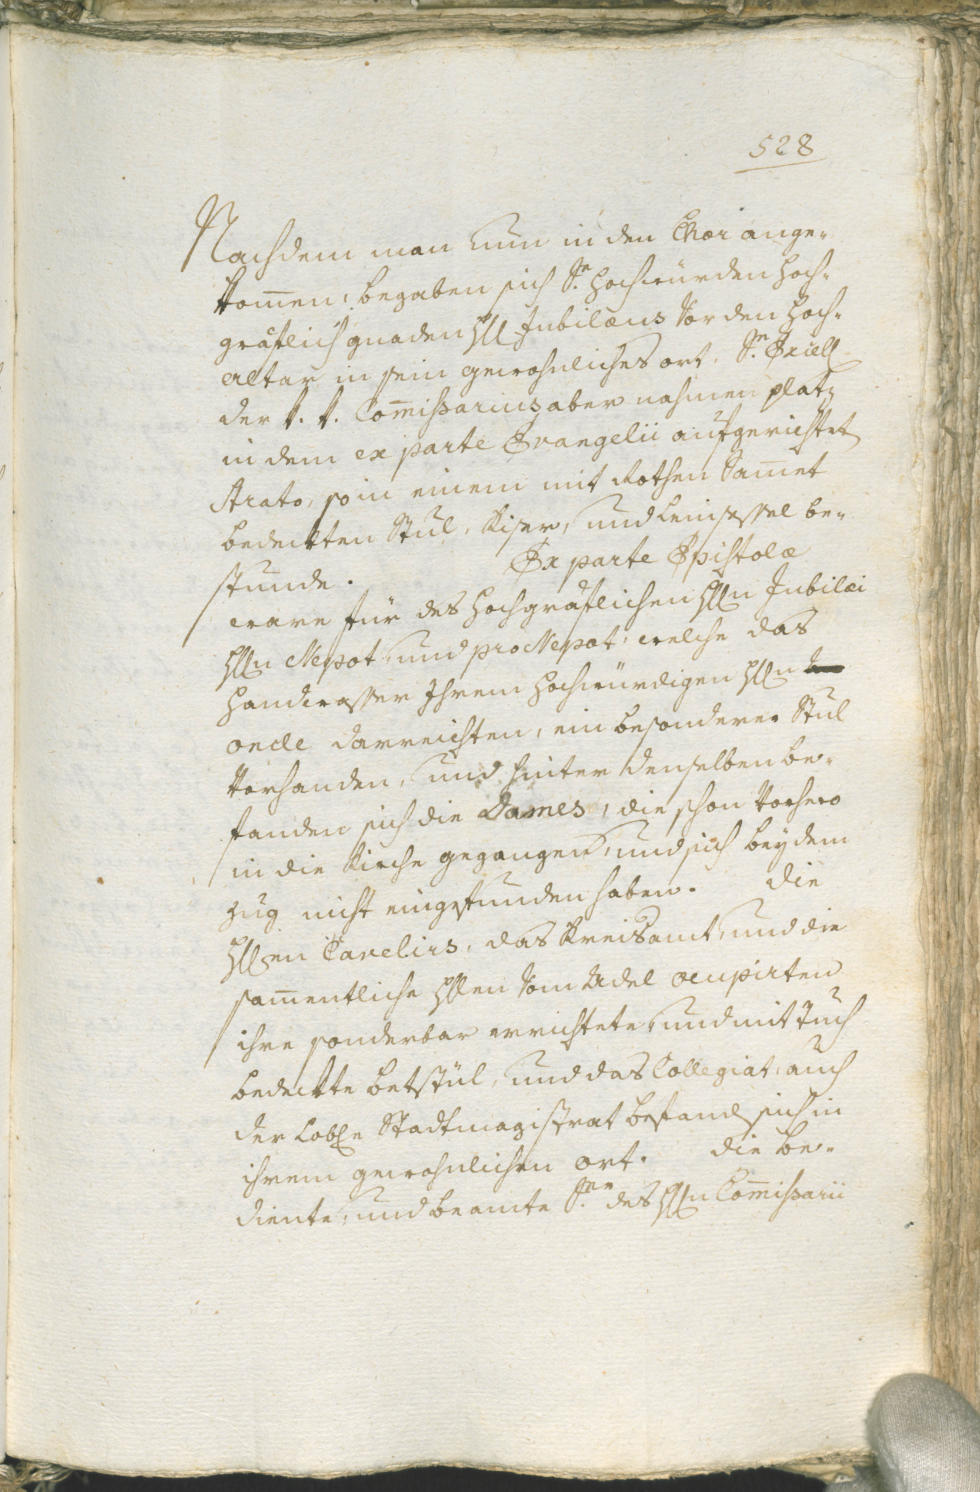 528
Nachdem man nun in den Chor ange-
kom̄en, begaben sich S.r Hochwürden Hoch-
gräflich gnaden H Jubilæus vor den Hoch-
altar in sein gewohnliches ort. S.e Excell
der k. k. Com̄issarius aber nahmen platz
in dem ex parte Evangelii aufgerichtet
Strato, so in einem mit Rothen Sam̄et
bedeckten Stul, Kiser, und Leinsessel be-
stunde. Ex parte Epistolæ
ware für des Hochgräflichen H Jubilæi
Hn Nepot, und proNepot, welche das
Handwasser Ihrem Hochwürdigen Hn
oncle darreichten, ein besonderer Stul
vorhanden, und hinter denselben be-
fanden sich die Dames, die schon vorhero
in die Kirche gegangen, und sich bey dem
Zug nicht eingefunden haben. Die
Hen Cavelirs, das Kreisamt, und die
sam̄entliche Hen vom Adel ocupirten
ihre sonderbar errichtete, und mit Tuch
bedeckte betstül, und das Collegiat, auch
der Lobl Stadtmagistrat befand sich in
ihrem gewohnlichen ort. die be-
diente, und beamte S.r des Hn Com̄issarii